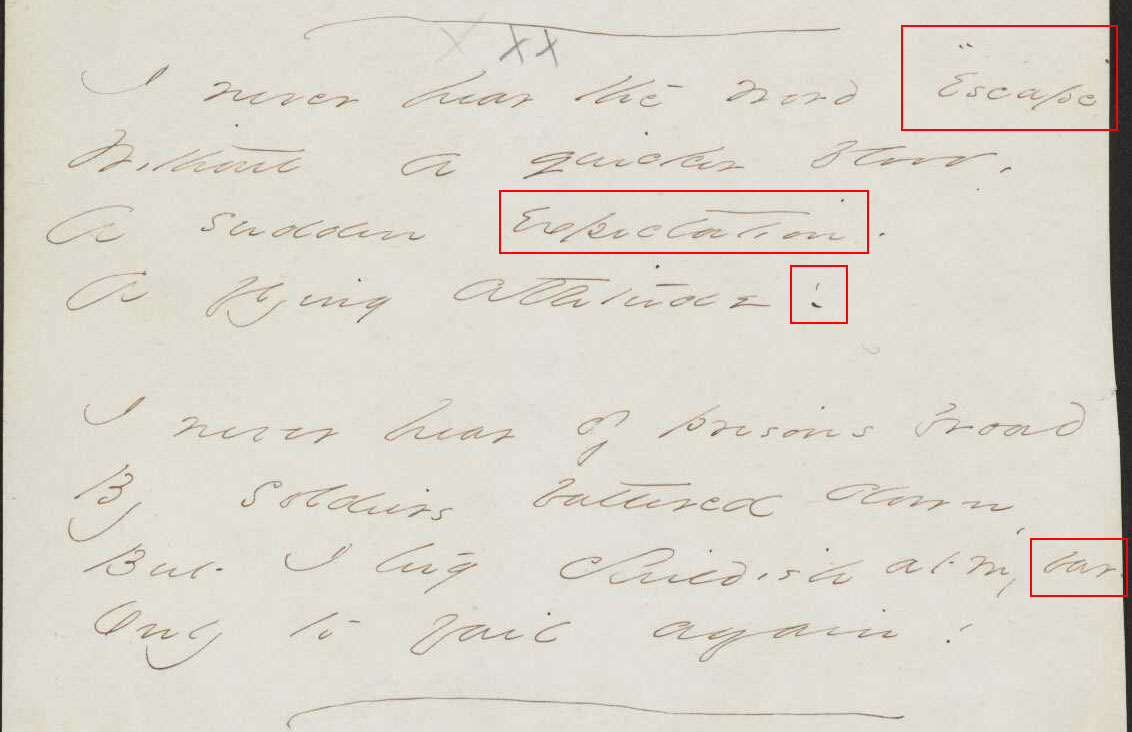 XX
I never hear the word "Escape"
Without a quicker blood,
A sudden Expectation.
A flying attitude!
I never hear of prisons broad
By Soldiers battered down,
But I tug Childish at my bars
Only to fail again!